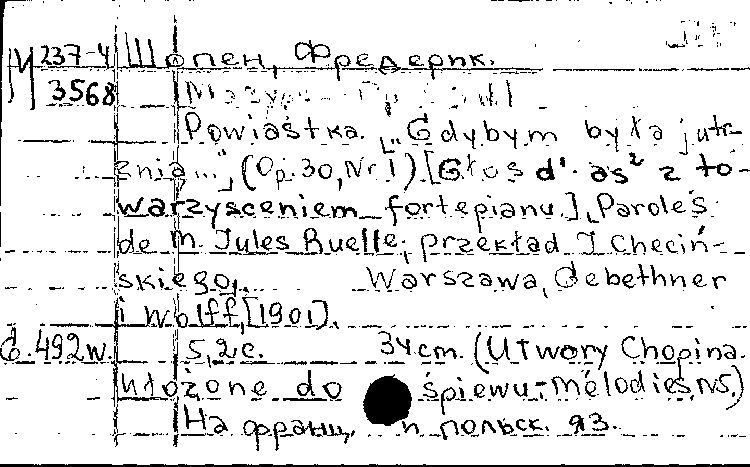 М 237-4 Шопен, Фредерик.
3568
Powiastka. „Gdybym była jutrz-
enią...", (Op. 30, Nr 1) [Głos d¹-as² z to-
warzyszeniem fortepianu.] Paroles
de M. Jules Ruelle; przekład J. Chęciń-
skiego. Warszawa, Gebethner
i Wolff, [1901].
G. 492 w. 5, 2 с. 34 cm. (Utwory Chopina
ułożone do śpiewu-mélodies, N5)
На франц. и польск. яз.